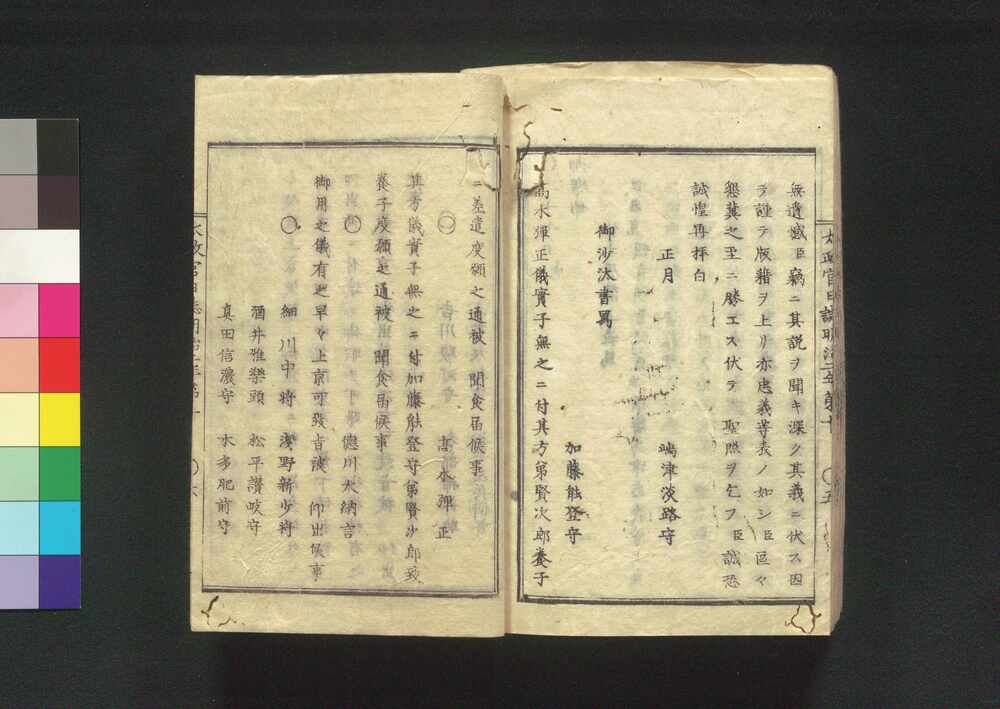 太政官日誌明治二年第十
〇五
無遺憾臣竊ニ其説ヲ聞キ深ク其義ニ伏ス因
テ謹テ版籍ヲ上リ亦忠義等表ノ如シ臣區々
懇冀之至ニ勝エス伏テ 聖照ヲ乞フ臣誠恐
誠惶再拝白
正月 嶋津淡路守
御沙汰書冩
加藤能登守
高木彈正儀實子無之ニ付其方弟賢次郎養子
ニ差遣度願之通被 聞食届候事
〇 高木彈正
其方儀實子無之ニ付加藤能登守弟賢次郎致
養子度願之通被 聞食届候事
〇 德川大納言
御用之儀有之早々上京可致旨被 仰出候事
〇 細川中将 淺野新少将
酒井雅樂頭 松平讃岐守
真田信濃守 本多肥前守
〇六